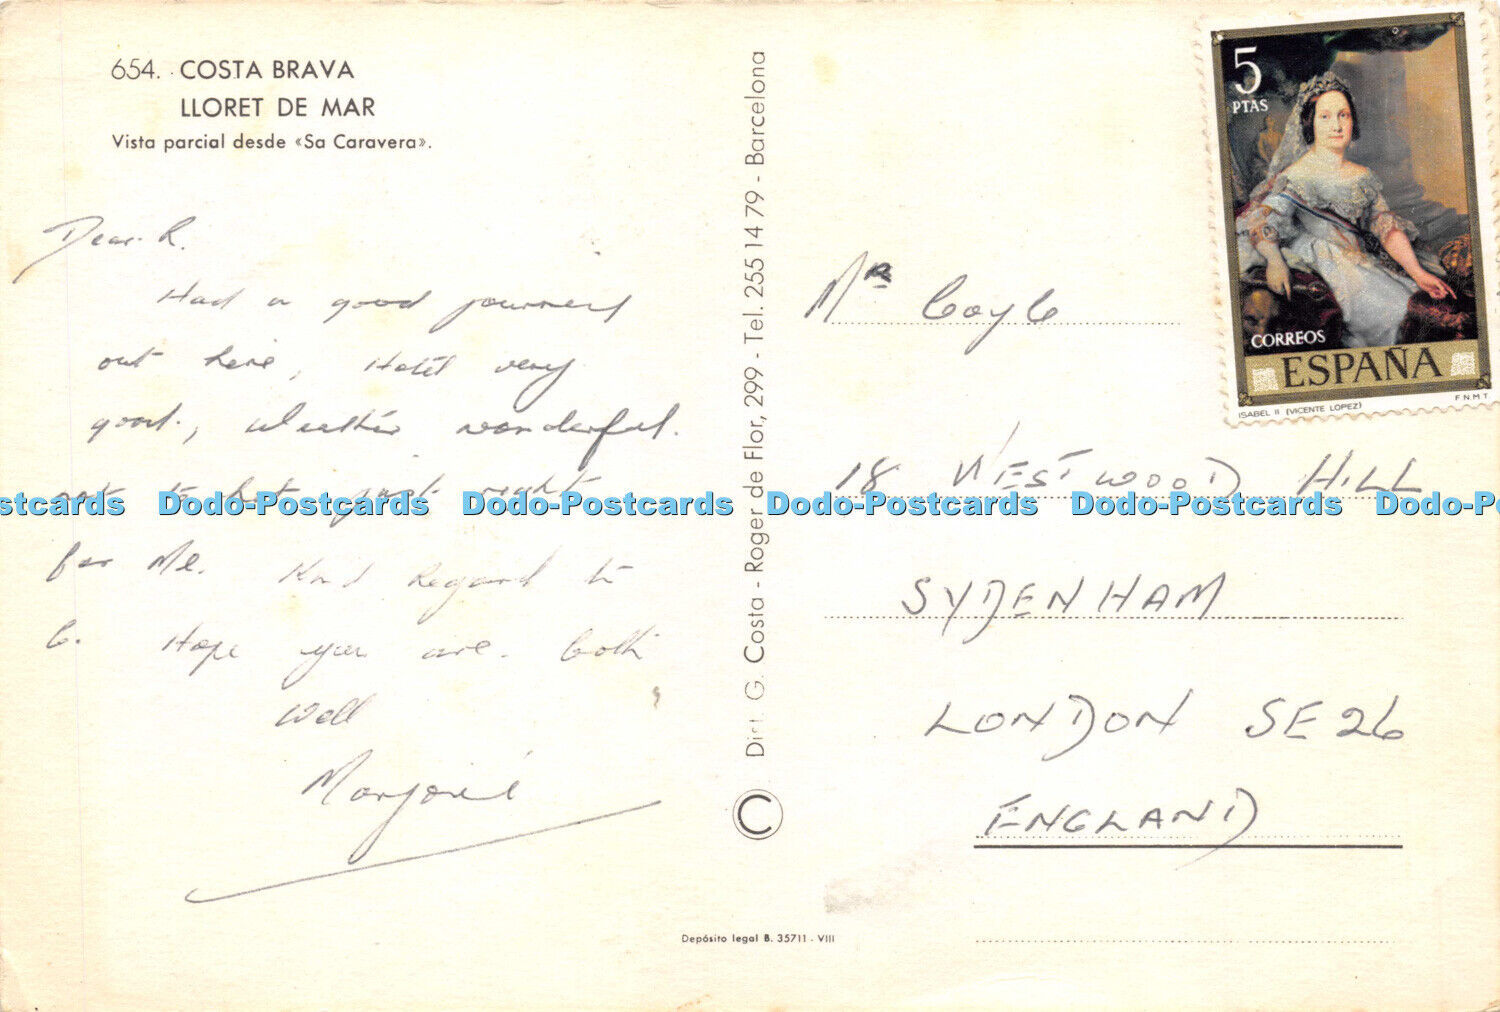 654. COSTA BRAVA
LLORET DE MAR
Vista parcial desde «Sa Caravera».
Dear R.
Had a good journey
out here, Hotel very
good, Weather wonderful.
not to hot just right
for Me. Kind Regard to
C. Hope you are both
well
Marjorie
Dist. G. Costa - Roger de Flor, 299 - Tel. 255 14 79 - Barcelona
C
Depósito legal B. 35711 - VIII
5
PTAS
CORREOS
ESPAÑA
ISABEL II (VICENTE LOPEZ)
F.N.M.T
Mrs Coyle
18 WESTWOOD HILL
SYDENHAM
LONDON SE 26
ENGLAND
stcards Dodo-Postcards Dodo-Postcards Dodo-Postcards Dodo-Postcards Dodo-P